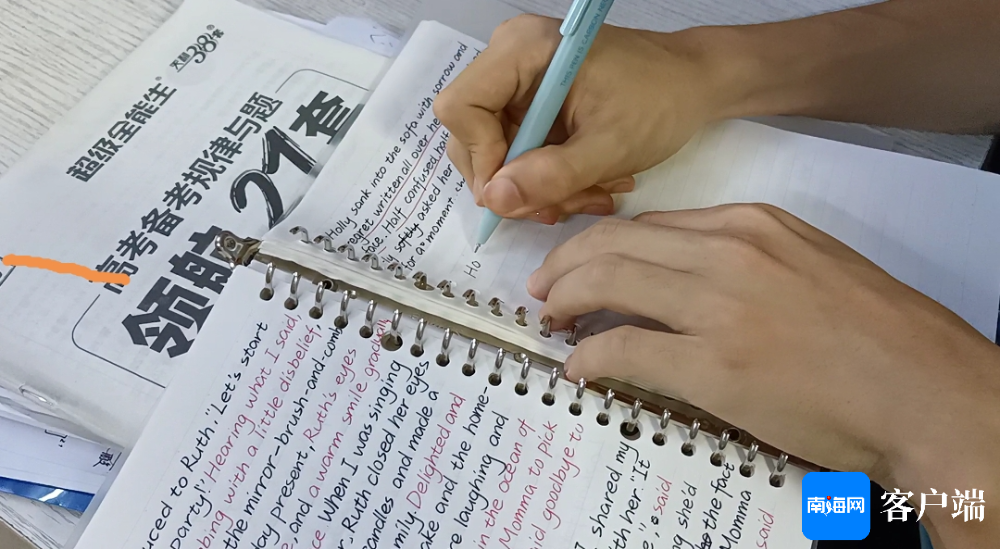 天星38套
超级全能生®
高考备考规律与题
领航21套
THIS PEN IS CARBON
Holly sank into the sofa with sorrow and
regret written all over he
face. Half confused half
ily softly asked her
for a moment
Ho
uced to Ruth, "Let's start
party!" Hearing what I said,
bing with a little disbelief,
the mirror-brush-and-comb
day present, Ruth's eyes
ce, and a warm smile gradually
When I was singing
r, Ruth closed her eyes
andles and made a
mily. Delighted and
ake and the home-
re laughing and
in the ocean of
Momma to pick
id goodbye to
I shared my
ith her. "It
," said
ng she'd
to the fact
Momma
said
南海网
客户端